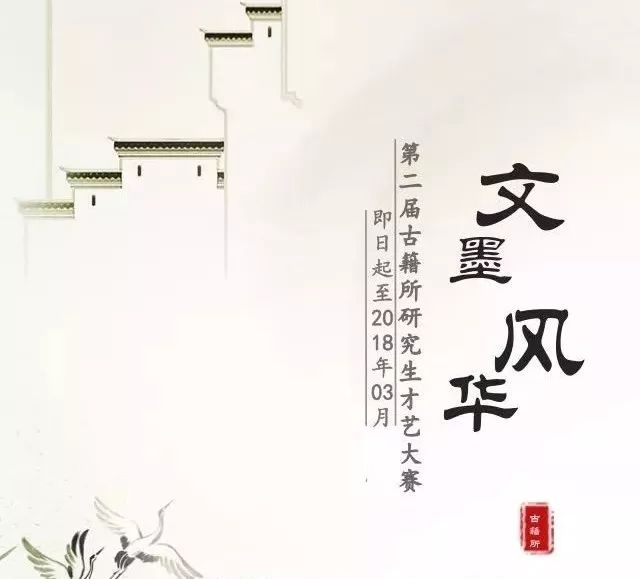 文墨
风华
第二届古籍所研究生才艺大赛
即日起至2018年03月
古籍所